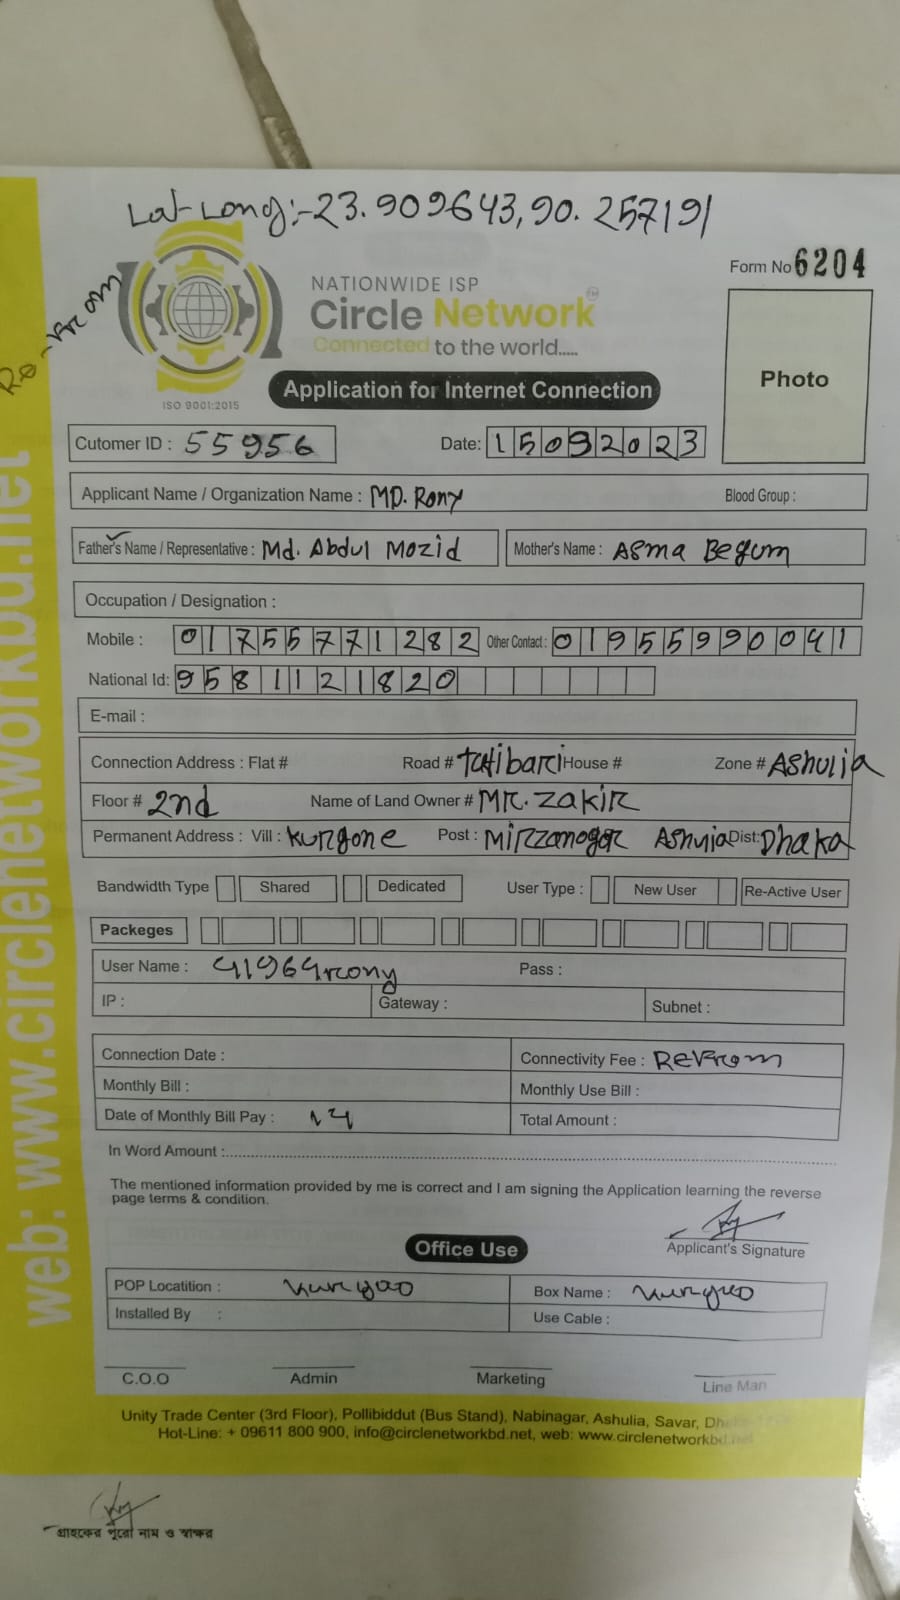 Lat-Long:-23.909643,90.257191
Form No 6204
Re-From
NATIONWIDE ISP
Circle Network
Connected to the world.....
ISO 9001:2015
Photo
Application for Internet Connection
Cutomer ID : 55956
Date: 15092023
Applicant Name / Organization Name : MD. Rony
Blood Group :
Father's Name / Representative : Md. Abdul Mozid
Mother's Name : Asma Begum
Occupation / Designation :
Mobile : 01755771282 Other Contact : 01955990041
National Id: 9581121820
E-mail :
Connection Address : Flat # Road # tatibari House # Zone # Ashulia
Floor # 2nd Name of Land Owner # MR. Zakir
Permanent Address : Vill : kurgone Post : Mirzanogor Ashuia Dist: Dhaka
Bandwidth Type Shared Dedicated User Type : New User Re-Active User
Packeges
User Name : 41964rony Pass :
IP : Gateway : Subnet :
Connection Date : Connectivity Fee : ReFrom
Monthly Bill : Monthly Use Bill :
Date of Monthly Bill Pay : Total Amount :
In Word Amount :
The mentioned information provided by me is correct and I am signing the Application learning the reverse
page terms & condition.
Applicant's Signature
Office Use
POP Locatition : Box Name :
Installed By : Use Cable :
C.O.O Admin Marketing Line Man
Unity Trade Center (3rd Floor), Pollibiddut (Bus Stand), Nabinagar, Ashulia, Savar,
Hot-Line: + 09611 800 900, info@circlenetworkbd.net, web: www.circlenetworkbd.net
web: www.circlenetworkbd.net
গ্রাহকের পুরো নাম ও স্বাক্ষর